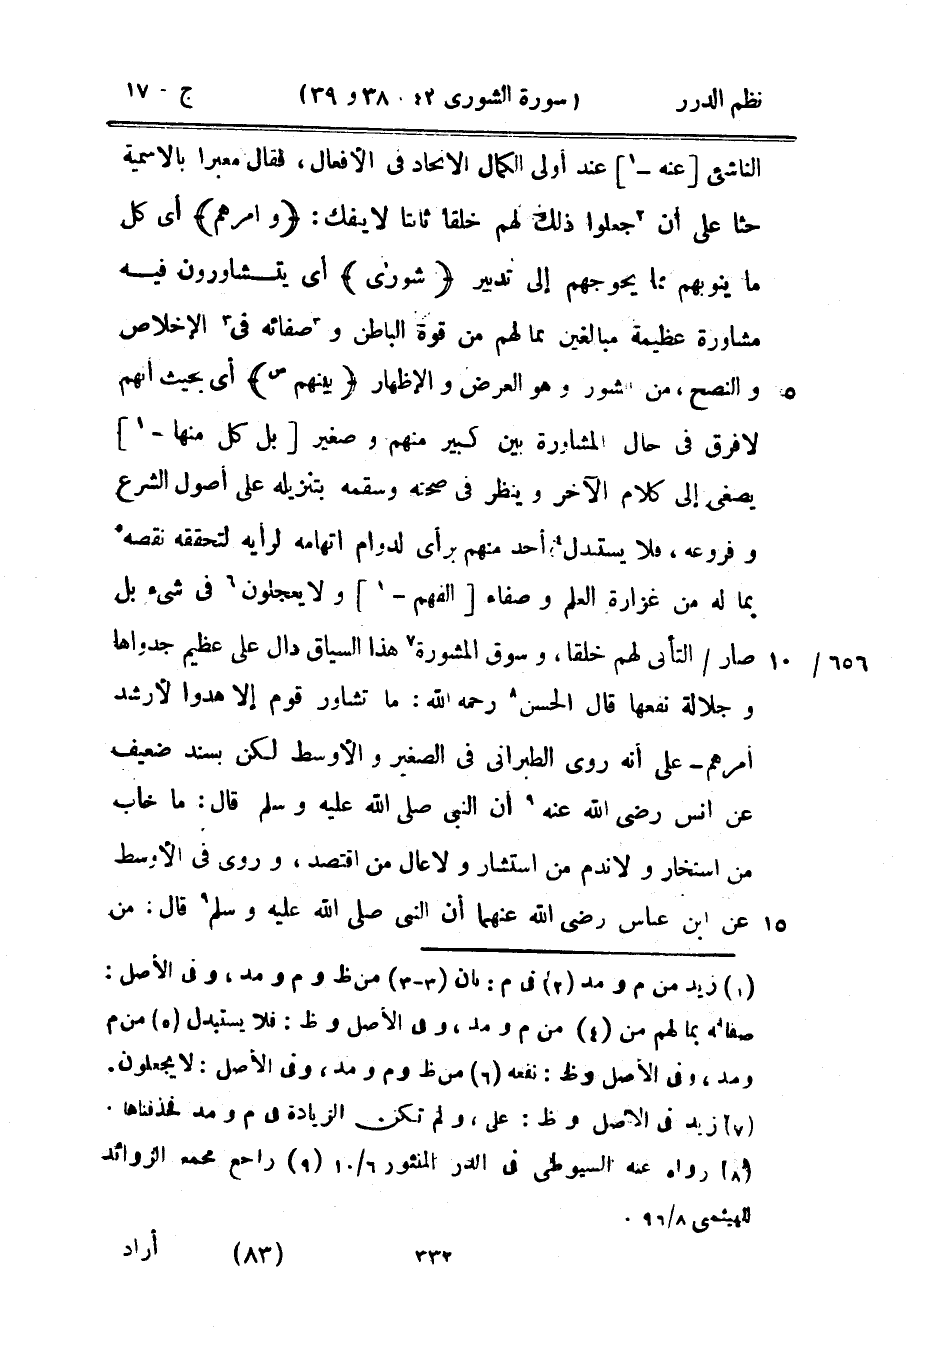 نظم الدرر (سورة الشورى ٤٢ : ٣٨ و ٣٩) ج - ١٧
الناشئ [عنه -١] عند أولى الكمال الاتحاد فى الأفعال ، فقال معبرا بالاسمية
حثا على أن ٢جعلوا ذلك لهم خلقا ثابتا لا ينفك : ﴿و امرهم﴾ أى كل
ما ينوبهم مما يحوجهم إلى تدبير ﴿شورى﴾ أى يتشاورون فيه
مشاورة عظيمة مبالغين بما لهم من قوة الباطن و ٣صفائه فى٣ الإخلاص
٥ و النصح ، من الشور و هو العرض و الإظهار ﴿بينهم ص﴾ أى بحيث أنهم
لا فرق فى حال المشاورة بين كبير منهم و صغير [ بل كل منها -١ ]
يصغى إلى كلام الآخر و ينظر فى صحته وسقمه بتنزيله على أصول الشرع
و فروعه ، فلا يستبدل٤ أحد منهم برأى لدوام اتهامه لرأيه لتحققه نقصه٥
بما له من غزارة العلم و صفاء [ الفهم -١ ] و لا يعجلون٦ فى شىء بل
٦٥٦/ ١٠ صار / التأنى لهم خلقا ، و سوق المشورة٧ هذا السياق دال على عظيم جدواها
و جلالة نفعها قال الحسن٨ رحمه الله : ما تشاور قوم إلا هدوا لأرشد
أمرهم - على أنه روى الطبرانى فى الصغير و الأوسط لكن بسند ضعيف
عن انس رضى الله عنه٩ أن النبى صلى الله عليه و سلم قال : ما خاب
من استخار و لا ندم من استشار و لا عال من اقتصد ، و روى فى الأوسط
١٥ عن ابن عباس رضى الله عنهما أن النبى صلى الله عليه و سلم٩ قال : من
(١) زيد من م و مد (٢) فى م : بان (٣-٣) من ظ و م و مد ، و فى الأصل :
صفائه بما لهم من (٤) من م و مد ، و فى الأصل و ظ : فلا يستبدل (٥) من م
ومد ، وفى الأصل وظ : نفعه (٦) من ظ و م و مد ، وفى الأصل : لا يجعلون .
(٧) زيد فى الأصل و ظ : على ، و لم تكن الزيادة فى م و مد فحذفناها .
(٨) رواه عنه السيوطى فى الدر المنثور ١٠/٦ (٩) راجع مجمع الزوائد
للهيثمى ٩٦/٨ .
٣٣٢ (٨٣) أراد